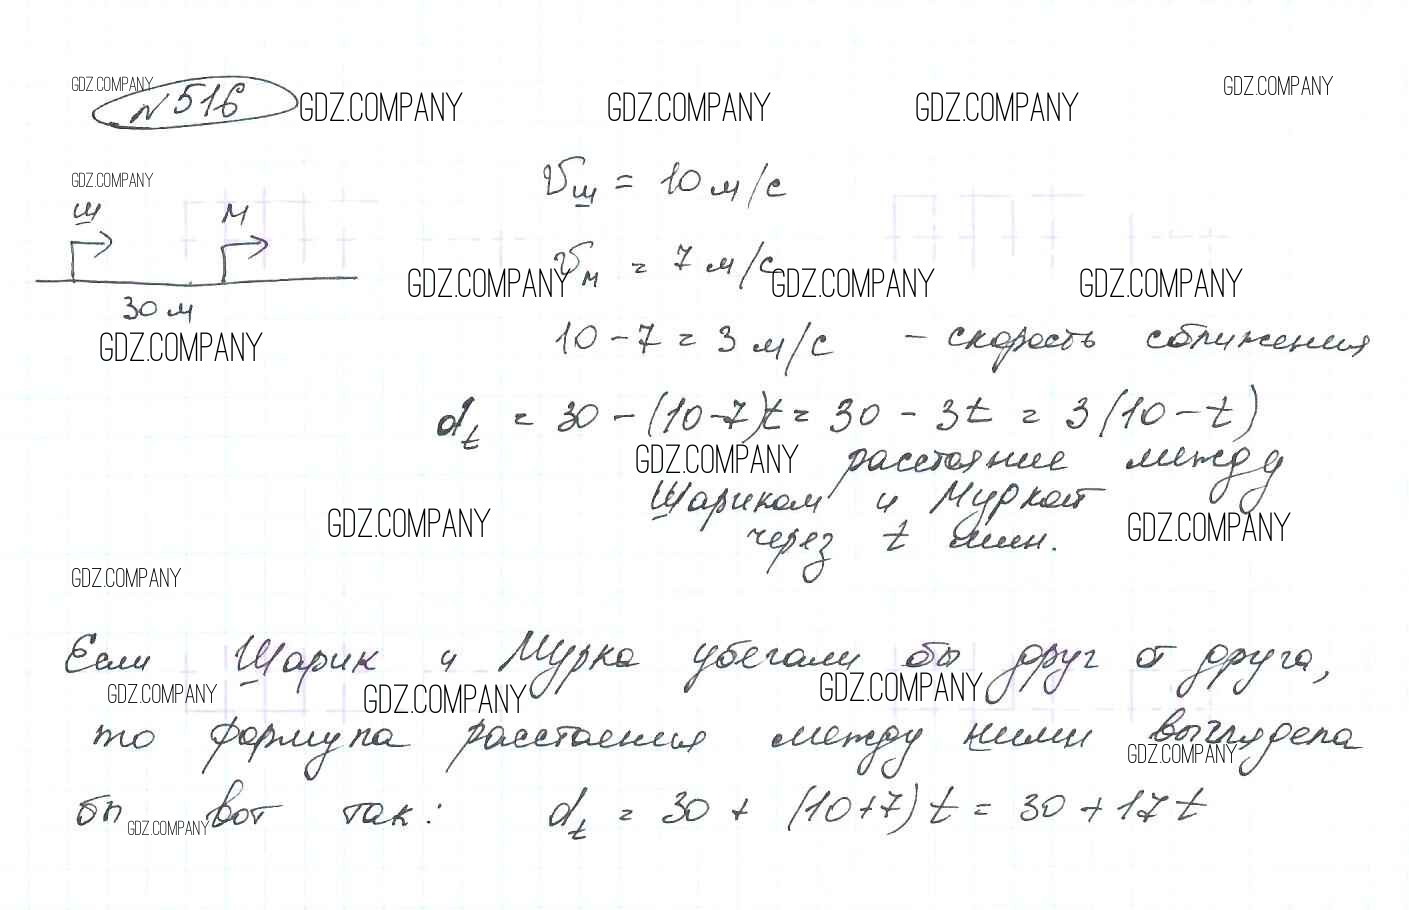 GDZ.COMPANY
№516 GDZ.COMPANY GDZ.COMPANY GDZ.COMPANY GDZ.COMPANY
GDZ.COMPANY
Ш М
30 м
GDZ.COMPANY
Vш = 10 м/с
Vм = 7 м/с
GDZ.COMPANY GDZ.COMPANY GDZ.COMPANY
10 - 7 = 3 м/с - скорость сближения
dt = 30 - (10-7)t = 30 - 3t = 3(10-t)
GDZ.COMPANY расстояние между
Шариком и Муркой
GDZ.COMPANY GDZ.COMPANY
через t мин.
GDZ.COMPANY
Если Шарик и Мурка убегали бы друг от друга,
GDZ.COMPANY GDZ.COMPANY GDZ.COMPANY
то формула расстояния между ними выглядела
GDZ.COMPANY
бы вот так: dt = 30 + (10+7)t = 30 + 17t
GDZ.COMPANY